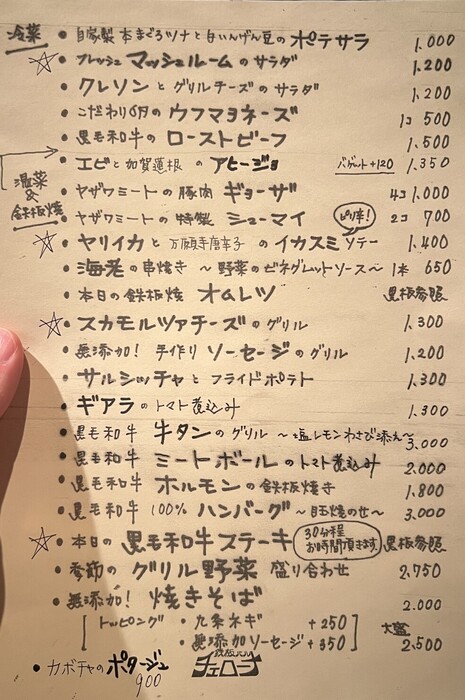 冷菜
・自家製 本まぐろツナと白いんげん豆のポテサラ 1,000
☆・フレッシュマッシュルームのサラダ 1,200
・クレソンとグリルチーズのサラダ 1,200
・こだわり卵のウフマヨネーズ 1コ 500
・黒毛和牛のローストビーフ 1,500
・エビと加賀蓮根のアヒージョ バゲット+120 1,350
温菜&鉄板焼
・ヤザワミートの豚肉ギョーザ 4コ 1,000
・ヤザワミートの特製シューマイ 2コ 700
☆・ヤリイカと万願寺唐辛子のイカスミソテー ピリ辛! 1,400
・海老の串焼き 〜野菜のビネグレットソース〜 1本 650
・本日の鉄板焼オムレツ 黒板参照
☆・スカモルツァチーズのグリル 1,300
・無添加! 手作りソーセージのグリル 1,200
・サルシッチャとフライドポテト 1,300
・ギアラのトマト煮込み 1,300
・黒毛和牛 牛タンのグリル 〜塩レモンわさび添え〜 3,000
・黒毛和牛 ミートボールのトマト煮込み 2,000
・黒毛和牛 ホルモンの鉄板焼き 1,800
・黒毛和牛 100% ハンバーグ 〜目玉焼のせ〜 3,000
☆・本日の黒毛和牛ステーキ 30分程お時間頂きます 黒板参照
・季節のグリル野菜 盛り合わせ 2,750
・無添加! 焼きそば 2,000
トッピング ・九条ネギ +250
・無添加ソーセージ +350 大盛 2,500
・カボチャのポタージュ 900
鉄板バル チェローナ